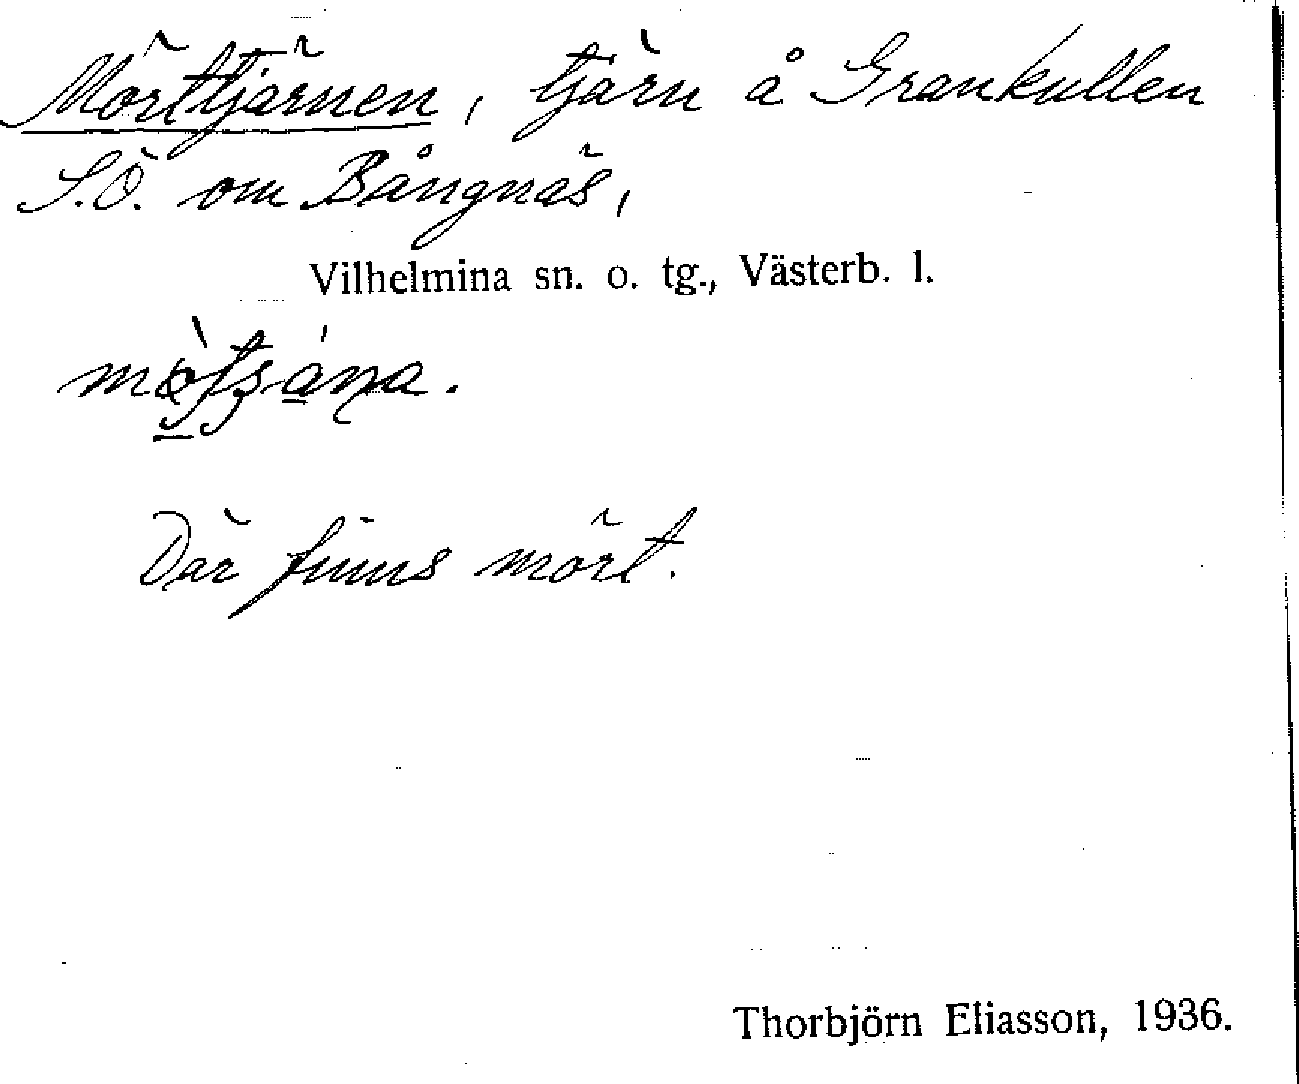 Mörttjärnen, tjärn å Grankullen
S.Ö. om Bångnäs,
Vilhelmina sn. o. tg., Västerb. l.
Där finns mört.
Thorbjörn Eliasson, 1936.